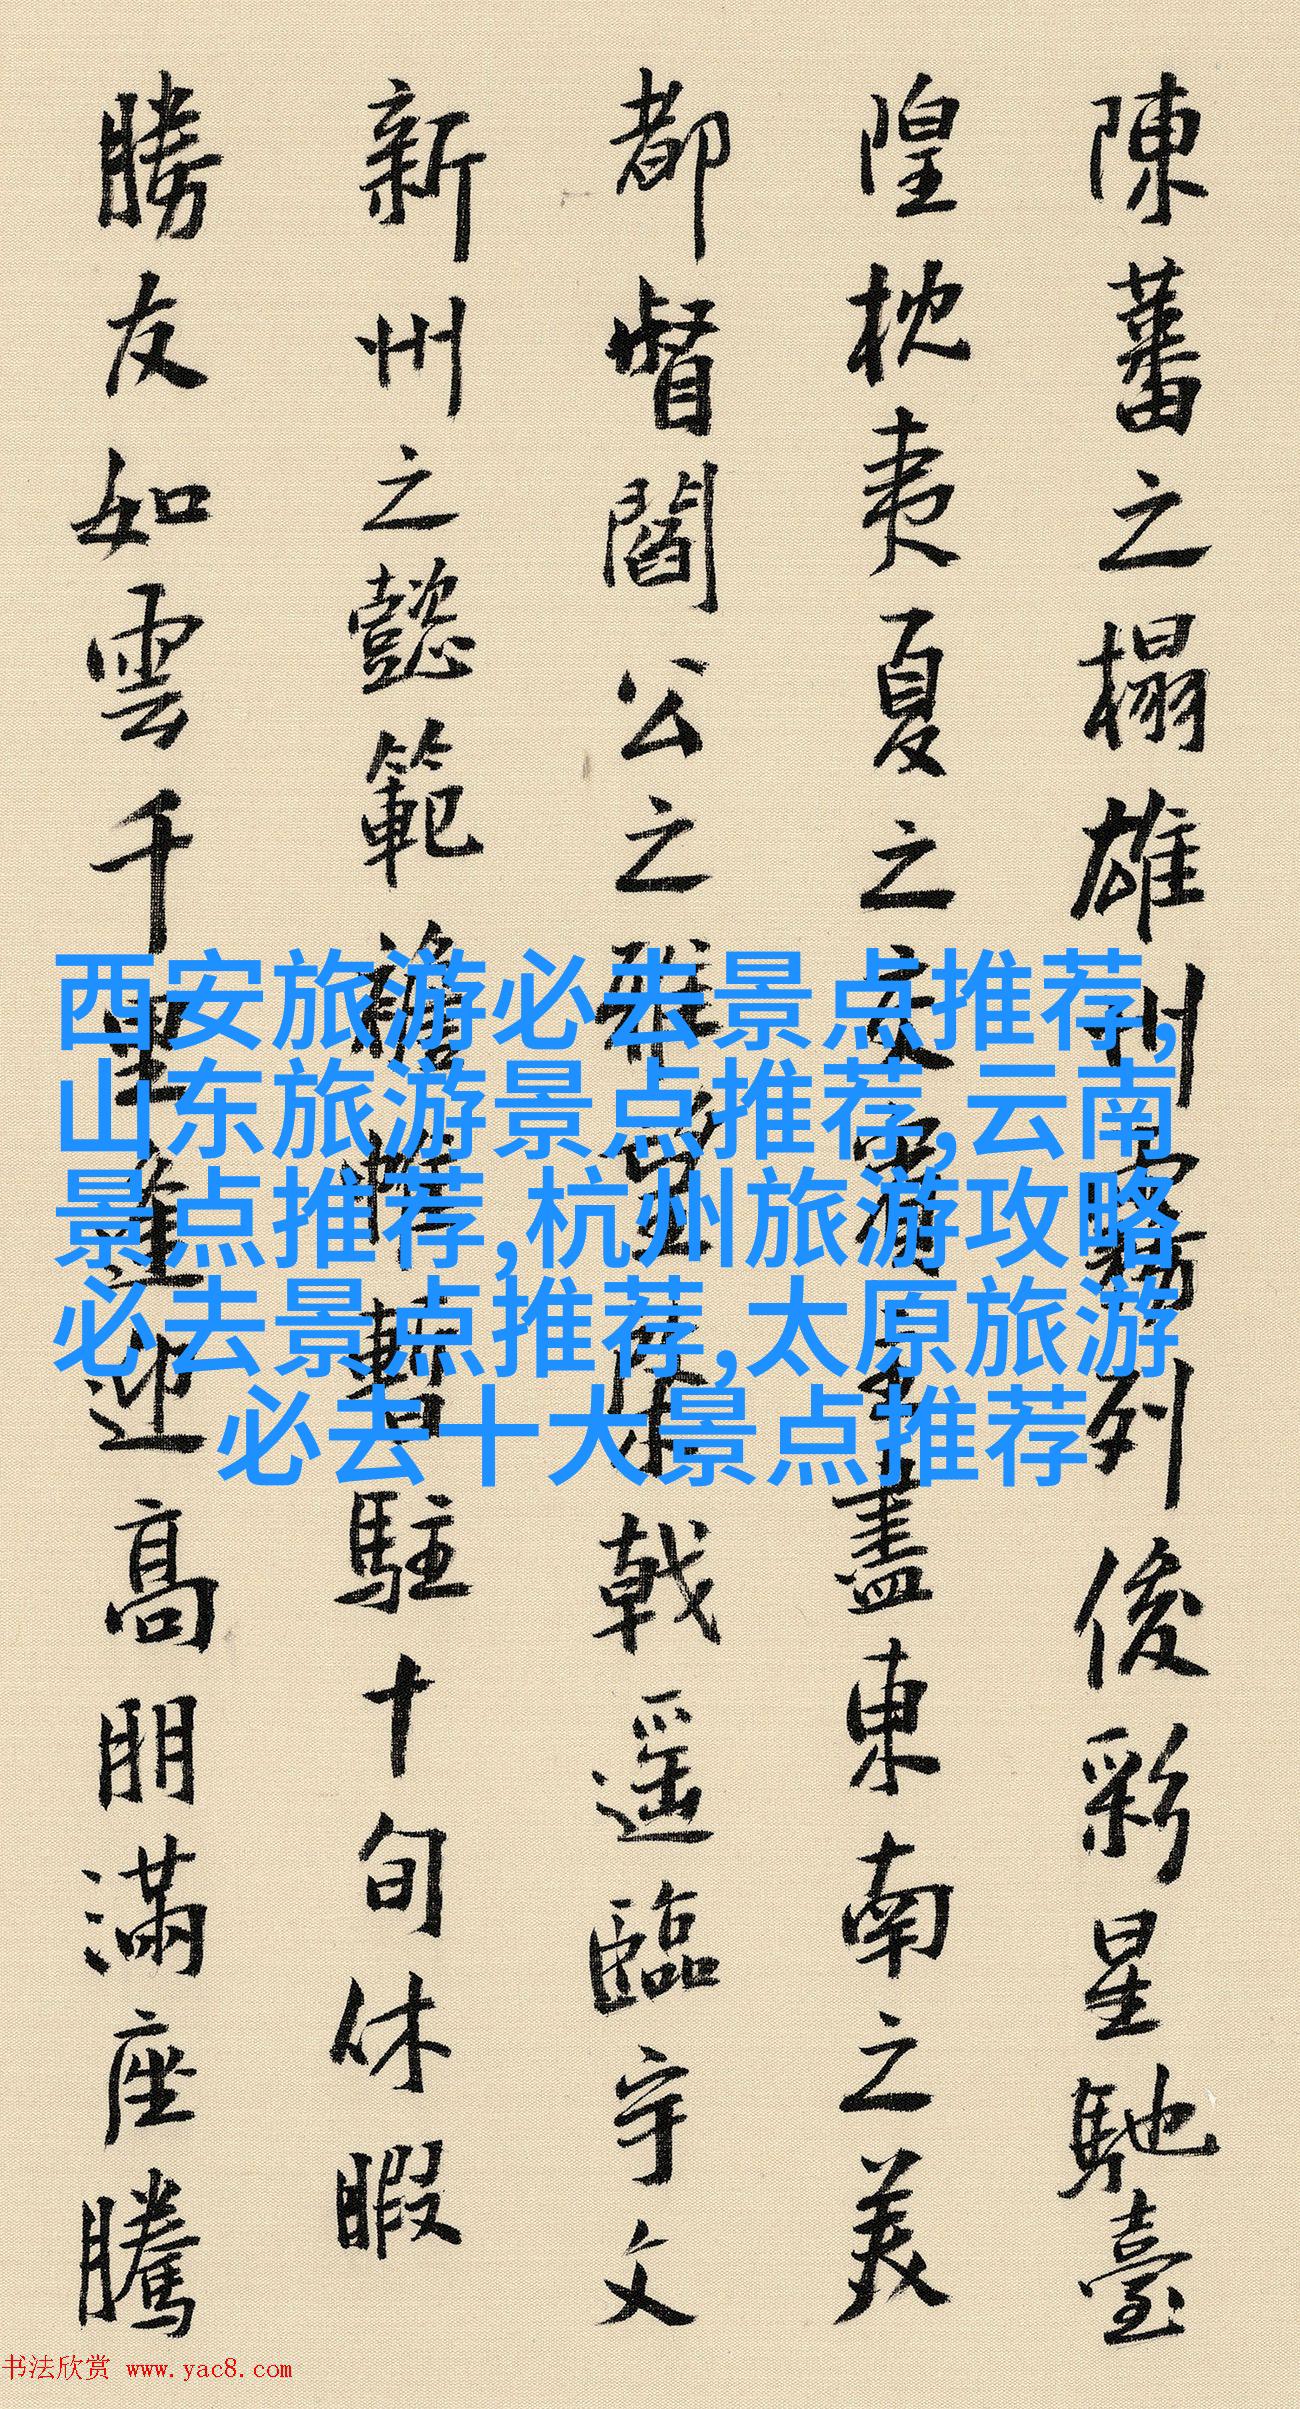 陳蕃之榻雄州霧列俊彩星馳臺
隍枕夷夏之交賓主盡東南之美
都督閻公之雅望棨戟遥臨宇文
新州之懿範襜帷暫駐十旬休暇
勝友如雲千里逢迎高朋滿座騰
西安旅游必去景点推荐,
山东旅游景点推荐,云南
景点推荐,杭州旅游攻略
必去景点推荐,太原旅游
必去十大景点推荐
书法欣赏 www.yac8.com